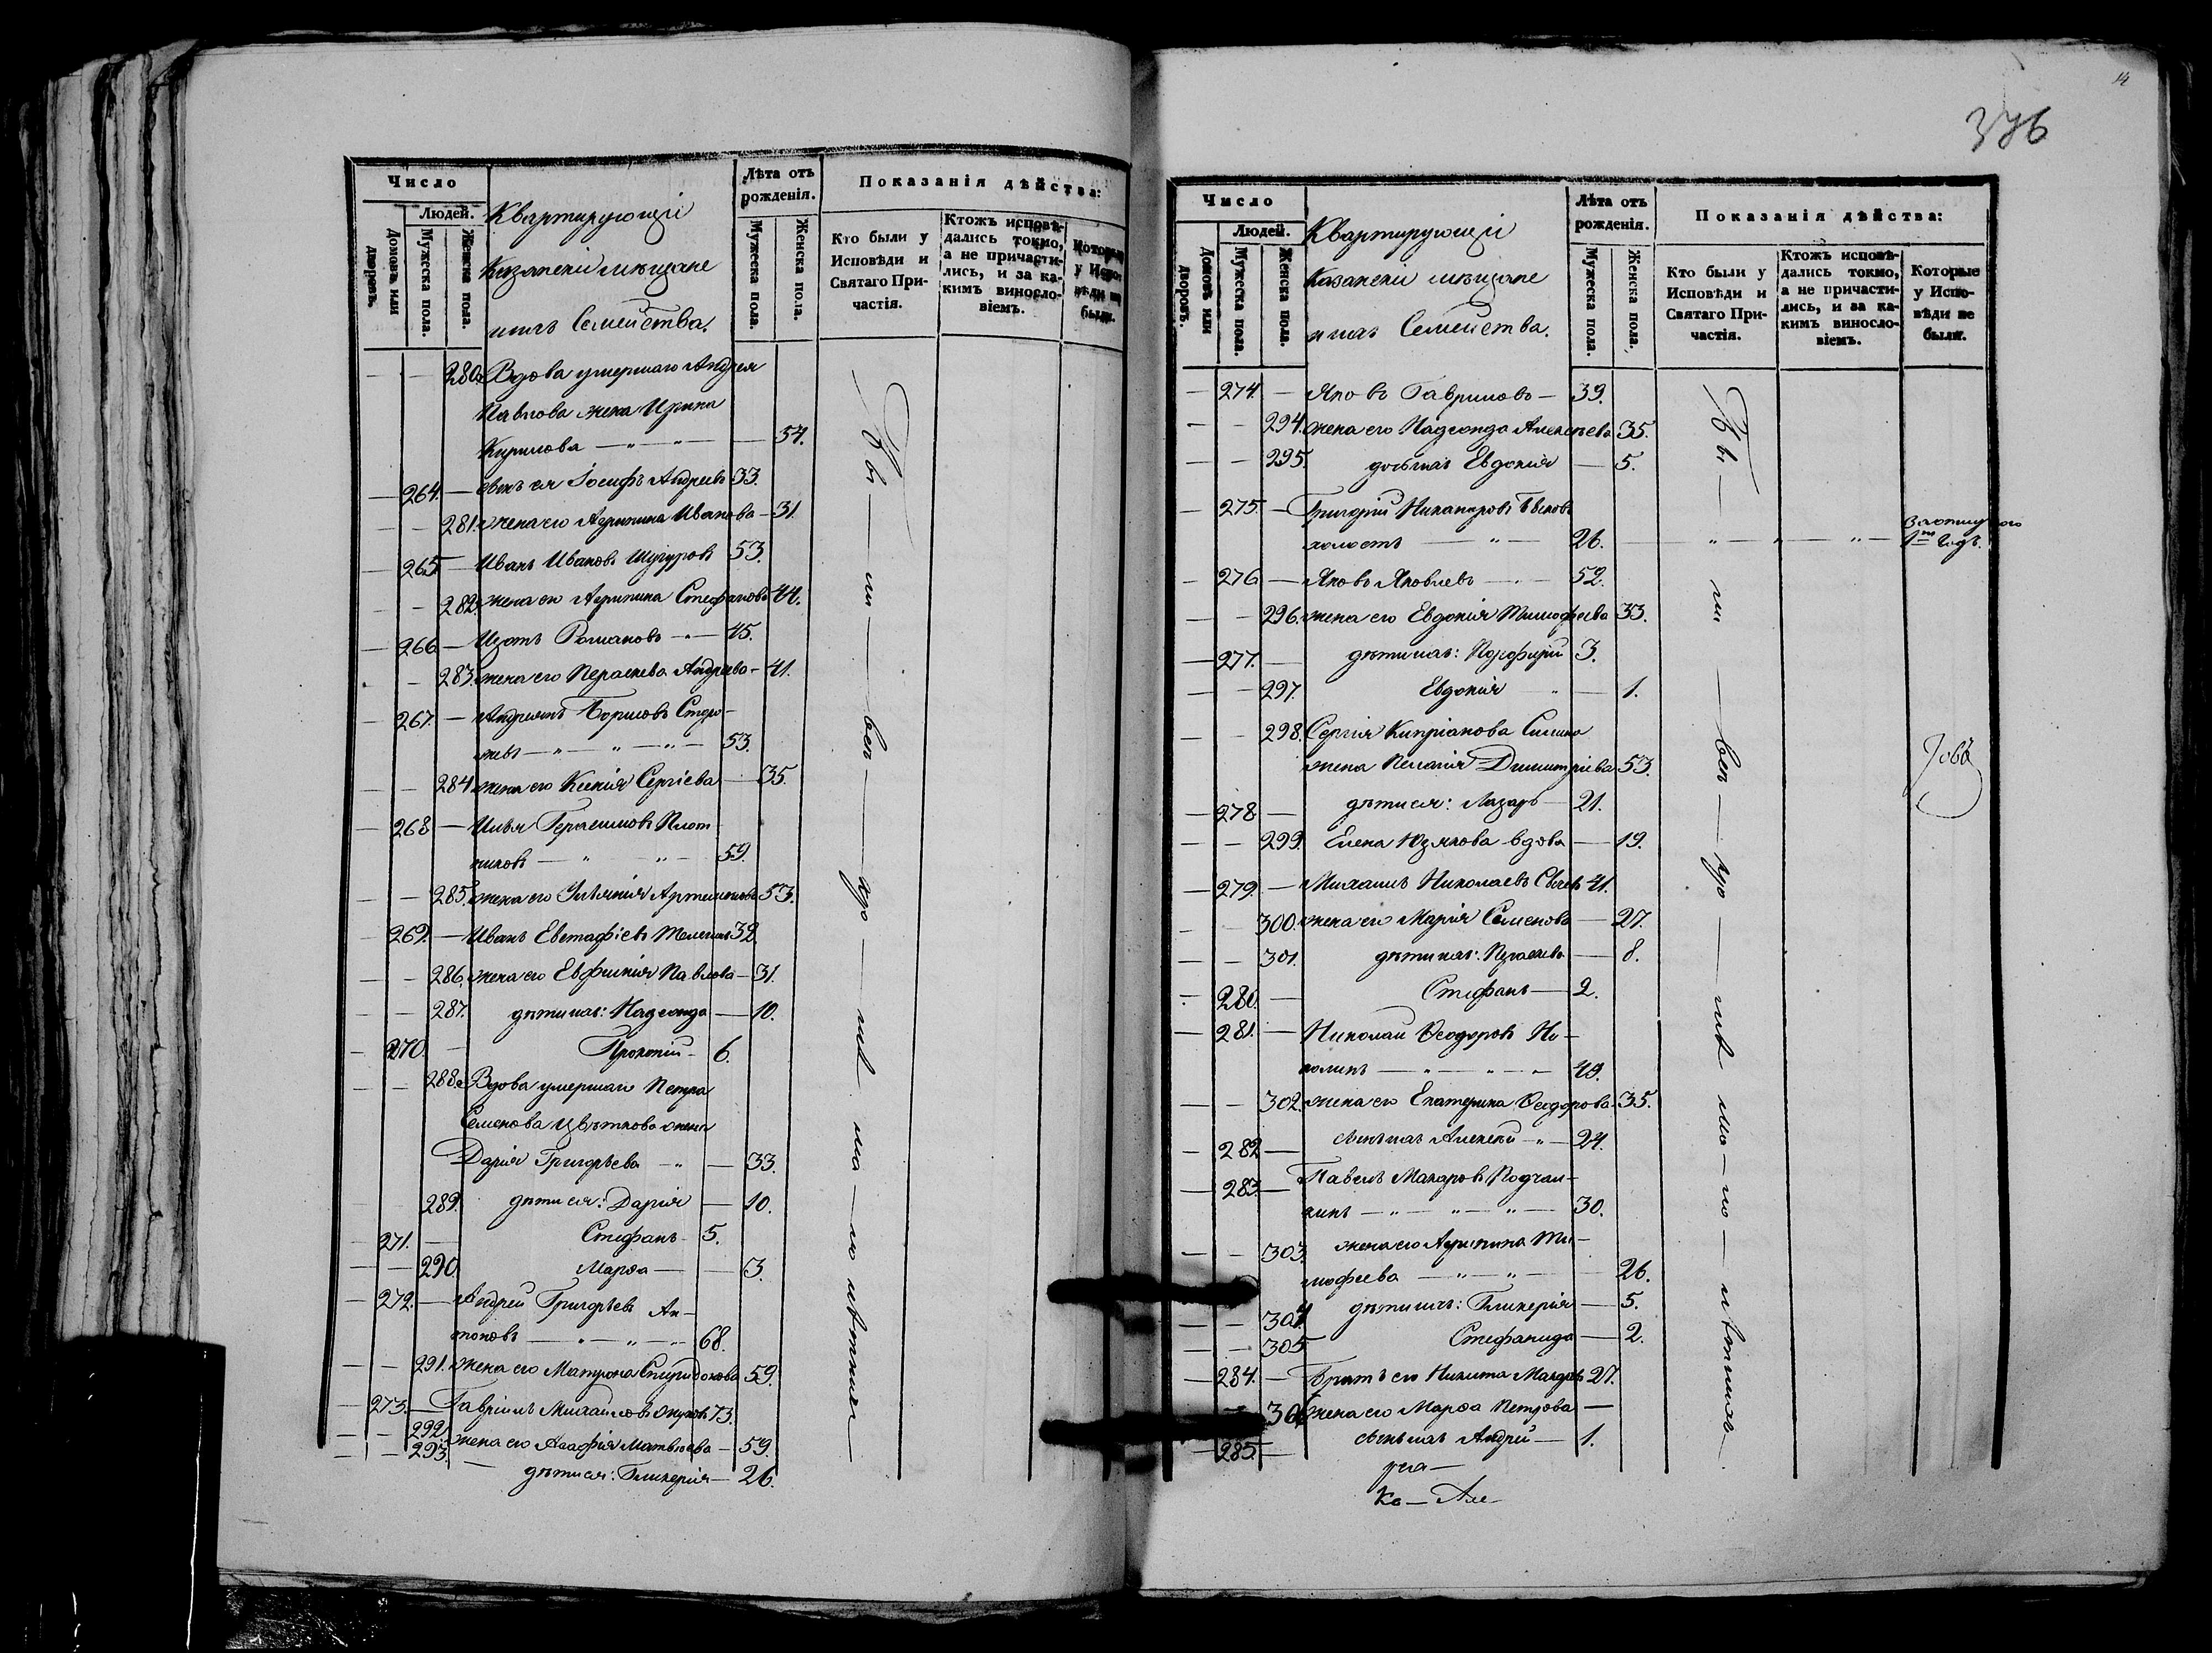 Число
Людей.
Домовъ или дворовъ.
Мужеска пола.
Женска пола.
Квартирующіи
Казанскіи мещане
и ихъ Семейства.
Лѣта отъ рожденія.
Мужеска пола.
Женска пола.
Показанія дѣйства:
Кто были у Исповѣди и Святаго Причастія.
Ктожъ исповѣдались токмо, а не причастились, и за какимъ винословіемъ.
Которые у Исповѣди не были.
— — 280. Вдова умершаго Андрея
Павлова жена Ирина
Кирилова — " — " — — 54.
— 264. — сынъ ея Іосифъ Андреевъ 33.
— — 281. жена его Агрипина Иванова — 31.
— 265 — Иванъ Ивановъ Шугуровъ 53.
— — 282. жена его Агрипина Стефанова 44.
— 266 — Изотъ Романовъ — " — 45.
— — 283. жена его Параскева Андреева — 41.
— 267. — Андреянъ Борисовъ Сторо-
жевъ — " — " — " — 53.
— — 284 жена его Ксенія Сергіева — 35.
— 268 — Илья Герасимовъ Плот-
никовъ — " — " — 59.
— — 285. жена его Уліянія 53.
— 269. — Иванъ Евстафіевъ 32
— — 286. жена его Евфимія Павлова — 31.
— — 287. дѣти ихъ: Надежда — 10.
— 270. — Прокопій — 6.
— — 288. Вдова умершаго Петра
Семенова Цвѣткова жена
Дарія Григорьева — " — 33.
— — 289. дѣти ея: Дарія — 10.
— 271. — Стефанъ — 5.
— — 290. Марѳа — — 3.
— 272. — Андрей Григорьевъ Ан-
тоновъ — " — " — 68.
— — 291. жена его Матрона Спиридонова 59.
— 273. — Гавріилъ Михайловъ 73.
— — 292. жена его Агафія Матвѣева — 59.
— — 293. дѣти ея: Гликерія — 26.
Бы — ли — всѣ
14
376
Число
Людей.
Домовъ или дворовъ.
Мужеска пола.
Женска пола.
Квартирующіи
Казанскіи мещане
и ихъ Семейства.
Лѣта отъ рожденія.
Мужеска пола.
Женска пола.
Показанія дѣйства:
Кто были у Исповѣди и Святаго Причастія.
Ктожъ исповѣдались токмо, а не причастились, и за какимъ винословіемъ.
Которые у Исповѣди не были.
— 274. — Яковъ Гавриловъ — 39.
— — 294. жена его Надежда Алексѣева 35.
— — 295. дочь ихъ Евдокія — 5.
— 275. — Григорій Никаноровъ
холостъ — " — 26.
— 276 — Яковъ Яковлевъ — 52.
— — 296. жена его Евдокія Тимофеева 33.
— 277. — дѣти ихъ: Порфирій 3.
— — 297. Евдокія " — 1.
— — 298. Сергія Кипріанова
жена Пелагія Димитріева 53.
— 278 — дѣти ея: Лазарь — 21.
— — 299. Елена вдова — 19.
— 279. — Михаилъ Николаевъ 41.
— — 300. жена его Марія Семенова — 27.
— — 301. дѣти ихъ: Параскева — 8.
— 280. — Стефанъ — 2.
— 281. — Николай Ѳеодоровъ Ни-
колинъ — " — " — 49.
— — 302. жена его Екатерина Ѳеодорова 35.
— 282 — сынъ ихъ Алексѣй — " — 24.
— 283. — Павелъ Макаровъ
кинъ — " — " — " — 30.
— — 303. жена его Агрипина Ти-
мофеева — " — " — 26.
— — 304. дѣти ихъ: Гликерія — 5.
— — 305 Стефанида — 2.
— 284. — Братъ его Никита Макаровъ 27.
жена его Марѳа Петрова —
285. — сынъ ихъ Андрей — 1.
Бы — ли — всѣ